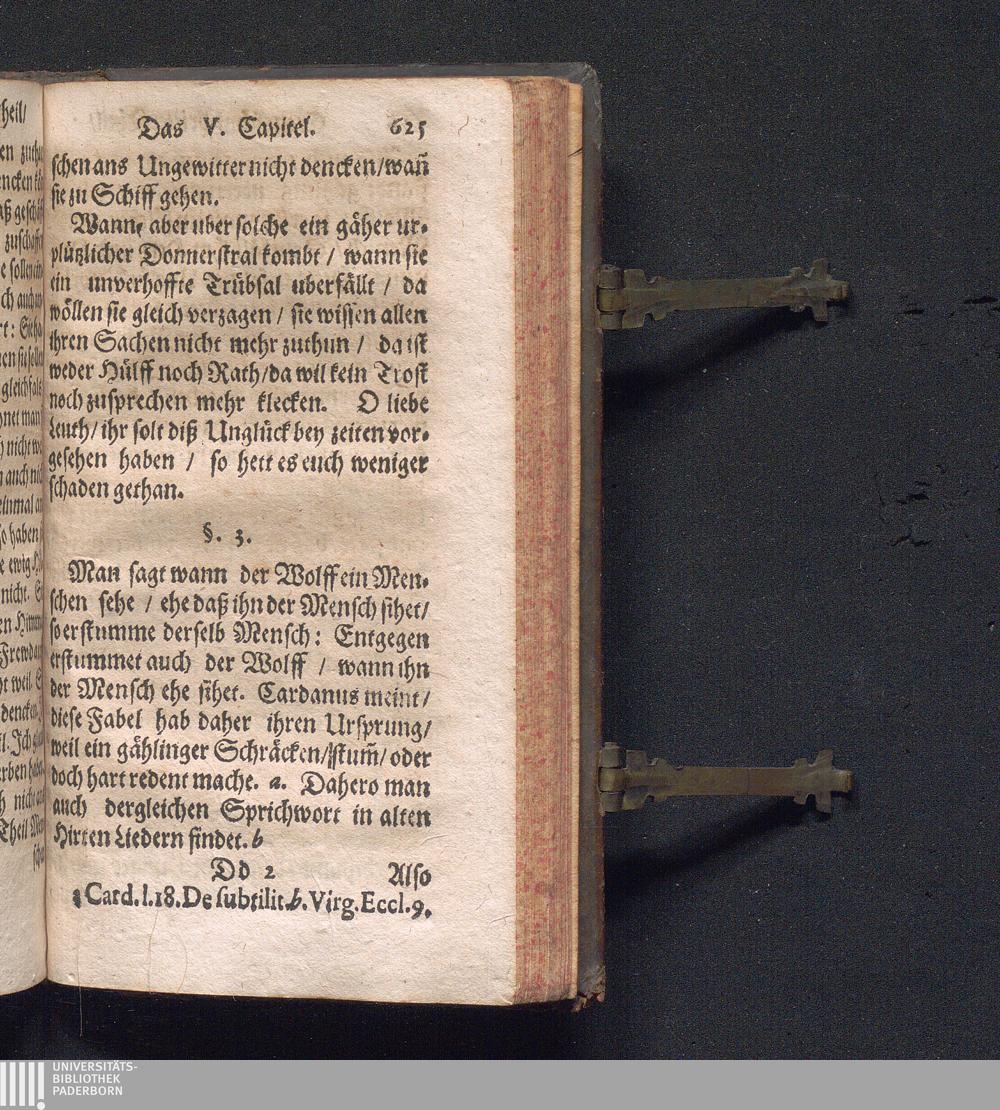 Das V. Capitel. 625
schen ans Ungewitter nicht dencken/wañ
sie zu Schiff gehen.
Wann, aber uber solche ein gäher ur-
plützlicher Donnerstral kombt / wann sie
ein unverhoffte Trübsal uberfällt / da
wöllen sie gleich verzagen / sie wissen allen
ihren Sachen nicht mehr zuthun / da ist
weder Hülff noch Rath/da wil kein Trost
noch zusprechen mehr klecken. O liebe
Leuth/ihr solt diß Unglück bey zeiten vor-
gesehen haben / so hett es euch weniger
schaden gethan.
§. 3.
Man sagt wann der Wolff ein Men-
schen sehe / ehe daß ihn der Mensch sihet/
so erstumme derselb Mensch: Entgegen
erstummet auch der Wolff / wann ihn
der Mensch ehe sihet. Cardanus meint/
diese Fabel hab daher ihren Ursprung/
weil ein gählinger Schräcken/stum̃/oder
doch hart redent mache. a. Dahero man
auch dergleichen Sprichwort in alten
Hirten Liedern findet. b
Dd 2 Also
a Card. l. 18. De subtilit. b. Virg. Eccl. 9.
UNIVERSITÄTS-
BIBLIOTHEK
PADERBORN